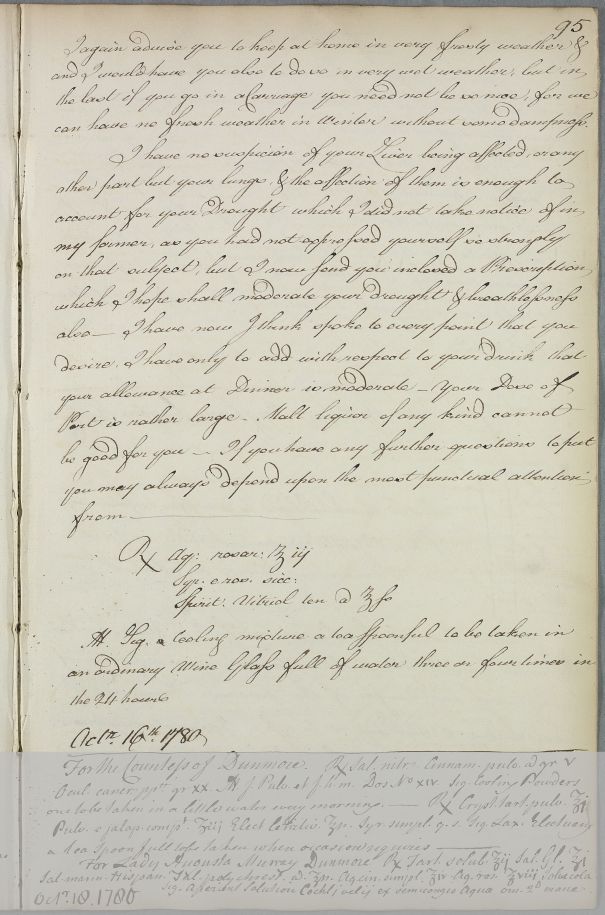 95
I again advise you to keep at home in very frosty weather &
and I would have you also to do so in very wet weather, but in
the last if you go in a Carriage you need not be so nice, for we
can have no fresh weather in Winter without some dampness.
I have no suspicion of your Liver being affected, or any
other part but your lungs, & the affection of them is enough to
account for your Drought which I did not take notice of in
my former, as you had not expressed yourself so strongly
on that subject, but I now send you inclosed a Prescription
which I hope shall moderate your drought & breathlessness
also — I have now I think spoke to every point that you
desire. I have only to add with respect to your drink that
your allowance at Dinner is moderate — Your Dose of
Port is rather large — Malt liquor of any kind cannot
be good for you — If you have any further questions to put
you may always depend upon the most punctual attention
from
℞ Aq: rosar: ℥ iij
Syr. e ros. sicc:
Spirit: Vitriol ten a ℥ ss
M. Sig. a Cooling mixture a teaspoonful to be taken in
an ordinary Wine Glass full of water three or four times in
the 24 hours
Octr. 16th. 1780
For the Countess of Dunmore. ℞ Sal. nitr. Cinnam. pulv. a gr V
Ocul. cancr. ppt. gr XX. M. f. Pulv. et f. h. m. Dos. No XIV. Sig. Cooling Powders
one to be taken in a little water every morning. — ℞ Cryst. tart. pulv. ℥j
Pulv. e jalap. comp. ʒiij Elect Lenitiv. ℥j. Syr. simpl. q. s. Sig. Lax. Electuary
a tea Spoon full to be taken when occasion requires
For Lady Augusta Murray Dunmore ℞ Tart. solub. ℥ij Sal. Gl. ℥j
Sal. marin. Hispan. Sal. polychrest. a ℥ss. Aq. cin. simpl. ℥iv Aq. ros. ℥viij solve cola
Sig. Aperient Solution Cochl. vel ij ex semicongio Aqua omi. 2do mane
Octr. 18. 1780